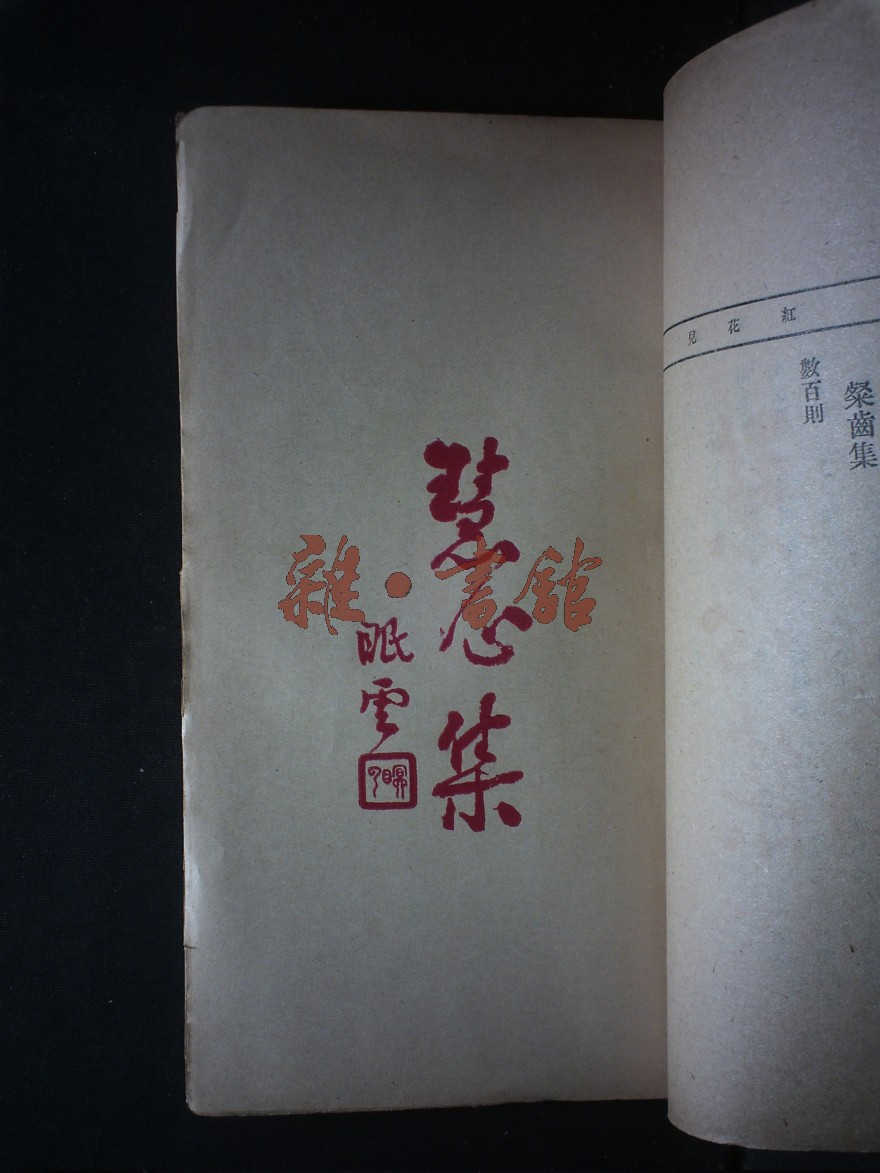 紅花兒
粲齒集
數百則
慧心集
眠雲
雜·書館